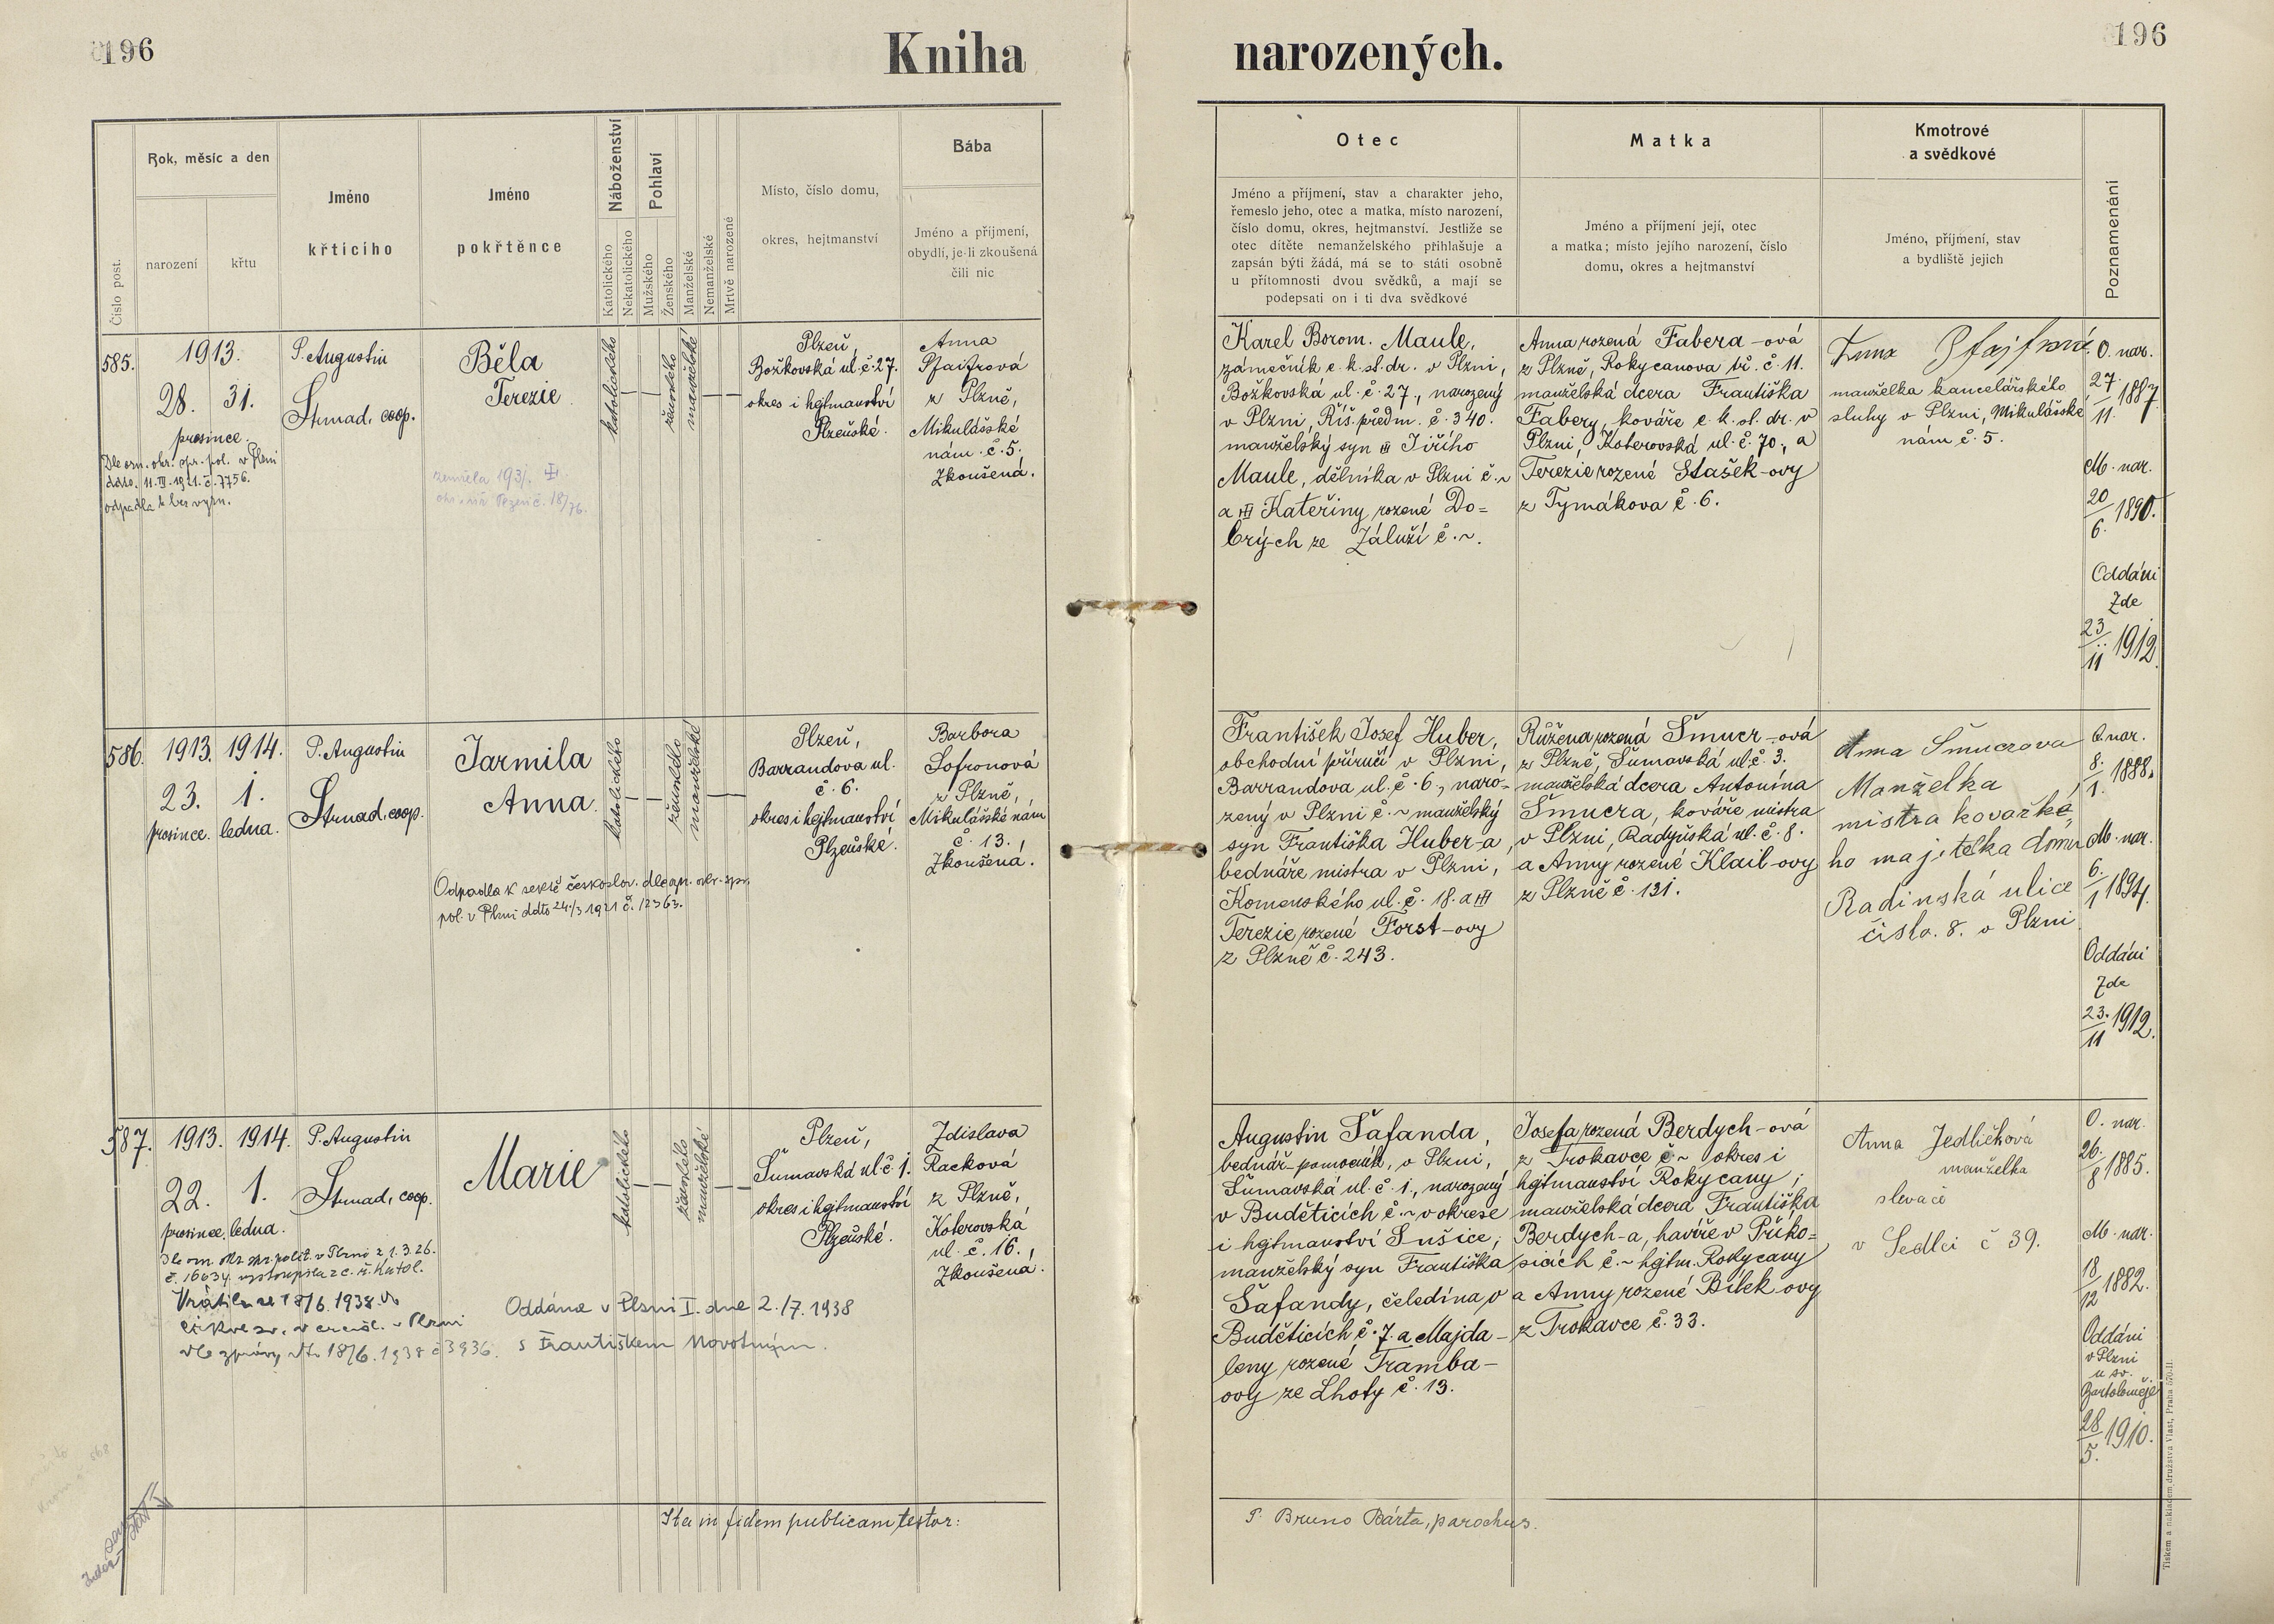 196
Kniha narozených.
196
Číslo post.
Rok, měsíc a den
narození
křtu
Jméno
křtícího
Jméno
pokřtěnce
Náboženství
Katolického
Nekatolického
Pohlaví
Mužského
Ženského
Manželské
Nemanželské
Mrtvě narozené
Místo, číslo domu,
okres, hejtmanství
Bába
Jméno a příjmení,
obydlí, je-li zkoušená
čili nic
Otec
Jméno a příjmení, stav a charakter jeho,
řemeslo jeho, otec a matka, místo narození,
číslo domu, okres, hejtmanství. Jestliže se
otec dítěte nemanželského přihlašuje a
zapsán býti žádá, má se to státi osobně
u přítomnosti dvou svědků, a mají se
podepsati on i ti dva svědkové
Matka
Jméno a příjmení její, otec
a matka; místo jejího narození, číslo
domu, okres a hejtmanství
Kmotrové
a svědkové
Jméno, příjmení, stav
a bydliště jejich
Poznamenání
585.
1913.
28. 31.
prosince.
Dle ozn. okr. spr. pol. v Plzni
ddto. 11.III.1921. č. 7756.
odpadla k bez vyzn.
P. Augustin
Strnad, coop.
Běla
Terezie
zemřela 193
katolického
ženského
manželské
Plzeň,
Božkovská ul. č. 27.
okres i hejtmanství
Plzeňské.
Anna
Pfaifrová
z Plzně,
Mikulášské
nám. č. 5.
Zkoušená.
Karel Borom. Maule,
zámečník c. k. st. dr. v Plzni,
Božkovská ul. č. 27., narozený
v Plzni, Říš. předm. č. 340.
manželský syn Jiřího
Maule, dělníka v Plzni č. ~
a Kateřiny rozené Do=
brý-ch ze Záluží č. ~.
Anna rozená Fabera-ová
z Plzně, Rokycanova tř. č. 11.
manželská dcera Františka
Fabery, kováře c. k. st. dr. v
Plzni, Koterovská ul. č. 70., a
Terezie rozené Stašek-ovy
z Tymákova č. 6.
Anna
manželka kancelářského
sluhy v Plzni, Mikulášské
nám č. 5.
O. nar.
27/11. 1887
M. nar.
20/6. 1890.
Oddáni
Zde
23/11 1912.
586.
1913. 1914.
23. 1.
prosince. ledna.
P. Augustin
Strnad, coop.
Jarmila
Anna.
Odpadla k sektě českoslov. dle ozn. okr. spr.
pol. v Plzni ddto 24./3 1921 č. 12363.
katolického
ženského
manželské
Plzeň,
Barrandova ul.
č. 6.
okres i hejtmanství
Plzeňské.
Barbora
Sofronová
z Plzně,
Mikulášské nám
č. 13.
Zkoušená.
František Josef Huber,
obchodní příručí v Plzni,
Barrandova ul. č. 6., naro-
zený v Plzni č. ~ manželský
syn Františka Huber-a,
bednáře mistra v Plzni,
Komenského ul. č. 18. a
Terezie rozené Forst-ovy
z Plzně č. 243.
Růžena rozená Šmucr-ová
z Plzně, Šumavská ul. č. 3.
manželská dcera Antonína
Šmucra, kováře mistra
v Plzni, Radyňská ul. č. 8.
a Anny rozené Klail-ovy
z Plzně č. 131.
Anna Šmucrova
Manželka
mistra kovařké,
ho majitelka domu
Radinská ulice
čislo. 8. v Plzni
O. nar.
8./1. 1888.
M. nar.
6./1 1894.
Oddáni
Zde
23./11 1912.
587.
1913. 1914.
22. 1.
prosince. ledna.
Dle ozn. okr. spr. polit. v Plzni z 1.3.26.
č. 16634. vystoupila z c. ř. katol.
Vrátila se 18/6.1938 do
církve
18/6.1938 č 3936.
P. Augustin
Strnad, coop.
Marie
Oddána v Plzni I. dne 2./7.1938
s Františkem Novotným.
katolického
ženského
manželské
Plzeň,
Šumavská ul č 1.
okres i hejtmanství
Plzeňské.
Zdislava
Racková
z Plzně,
Koterovská
ul. č. 16.,
Zkoušená.
Augustin Šafanda,
bednář-pomocník, v Plzni,
Šumavská ul. č. 1., narozený
v Buděticích č. ~ v okrese
i hejtmanství Sušice;
manželský syn Františka
Šafandy, čeledína v
Buděticích č. 7. a Majda-
leny rozené Tramba-
ovy ze Lhoty č. 13.
Josefa rozená Berdych-ová
z Trokavce č. ~ okres i
hejtmanství Rokycany;
manželská dcera Františka
Berdych-a, havíře v Příko=
sicích č. ~ hejtm. Rokycany
a Anny rozené Bílek-ovy
z Trokavce č. 33.
Anna Jedličková
manželka
slevače
v Sedlci č 39.
O. nar.
26./8 1885.
M. nar.
18/12 1882.
Oddáni
v Plzni
u sv.
Bartoloměje
28/5. 1910.
Ita in fidem publicam testor:
P. Bruno Bárta, parochus.
Tiskem a nákladem družstva Vlast, Praha 570-II.